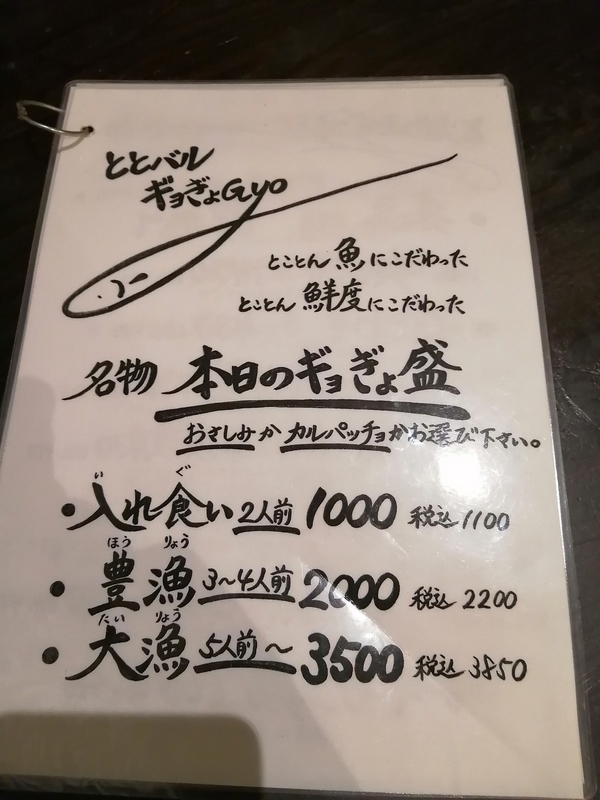 ととバル
ギョぎょGyo
とことん魚にこだわった
とことん鮮度にこだわった
名物 本日のギョぎょ盛
おさしみかカルパッチョかお選び下さい。
い ぐ
・入れ食い 2人前 1000 税込1100
ほう りょう
・豊漁 3〜4人前 2000 税込2200
たい りょう
・大漁 5人前〜 3500 税込3850